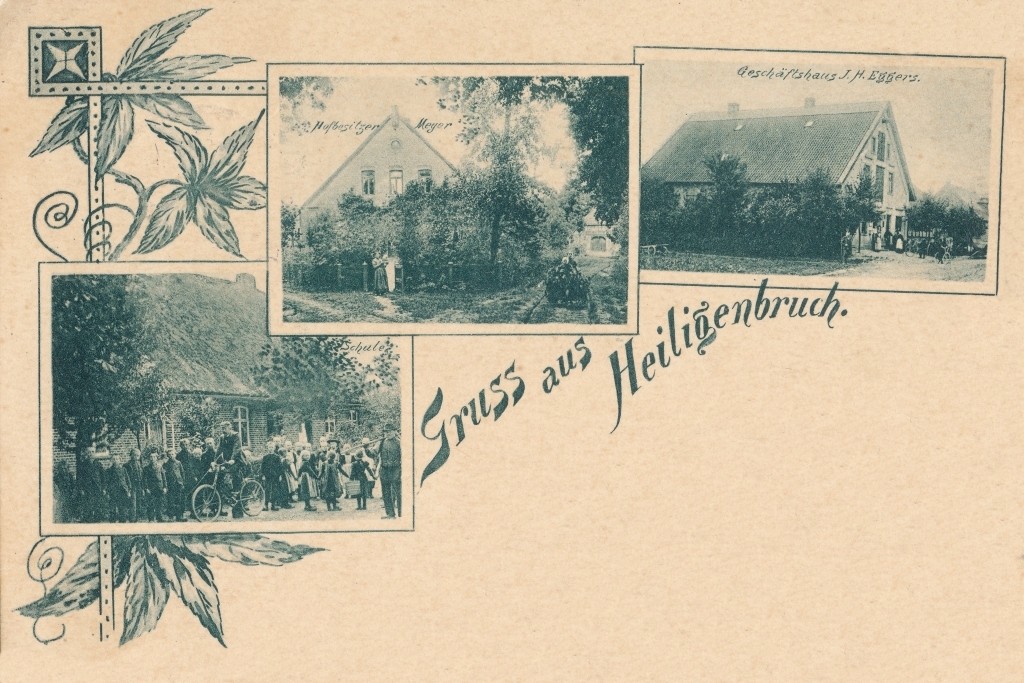 Geschäftshaus J. H. Eggers.
Hofbesitzer Meyer
Schule
Gruss aus Heiligenbruch.